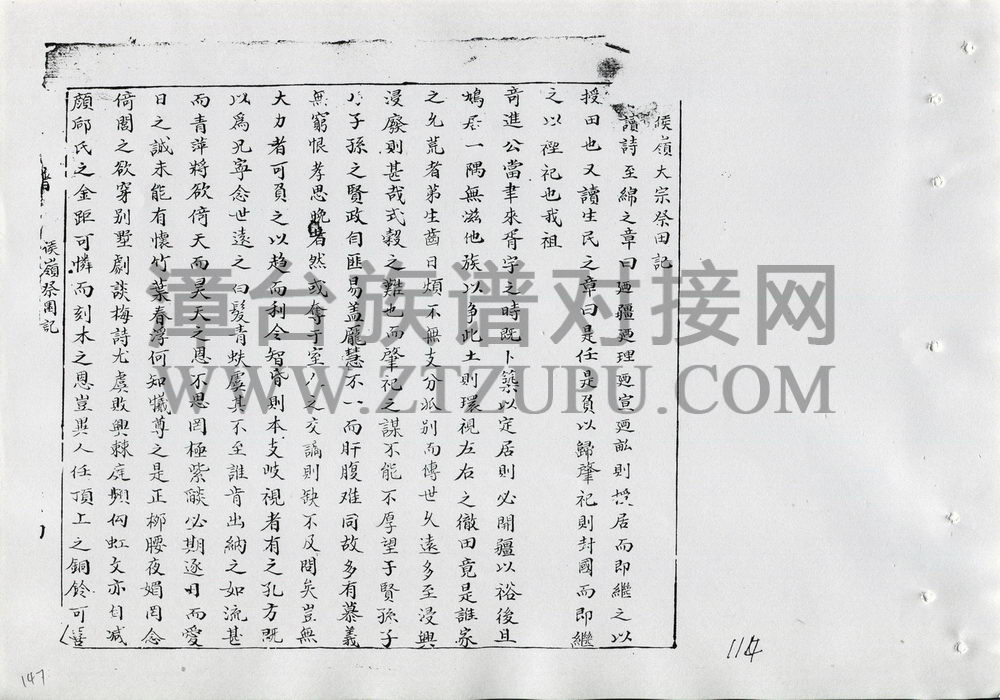 侯嶺大宗祭田記
讀詩至綿之章曰廼疆廼理廼宣廼畝則授居而即繼之以
授田也又讀生民之章曰是任是負以歸肇祀則封國而即繼
之以禋祀也我祖
奇進公當聿來胥宇之時既卜築以定居則必開疆以裕後且
鳩居一隅無滋他族以爭此土則環視左右之徹田竟是誰家
之允荒者苐生齒日煩不無支分派別而傳世久遠多至浸興
浸廢則甚哉式穀之難也而肇祀之謀不能不厚望于賢孫子
子孫之賢政自匪易盖龐慧不一而肝腹难同故多有慕義
無窮恨孝思晚者然或奪于室人之交謫則缺不及問矣豈無
大力者可負之以趋而利令智昏則本支歧視者有之孔方既
以爲兄寧念世遠之白髮青蚨虞其不至誰肯出納之如流甚
而青萍將欲倚天而昊天之恩不思罔極紫燄必期逐日而愛
日之誠未能有懷竹葉春浮何知犧尊之是正柳腰夜媚罔念
倚閭之欲穿別墅劇談梅詩尤虞敗興棘庭興仞虹文亦自减
顏邱氏之金距可憐而刻木之恩豈異人任頂上之銅鈴可喜
侯嶺祭田記
114
147
漳台族谱对接网
WWW.ZTZUPU.COM